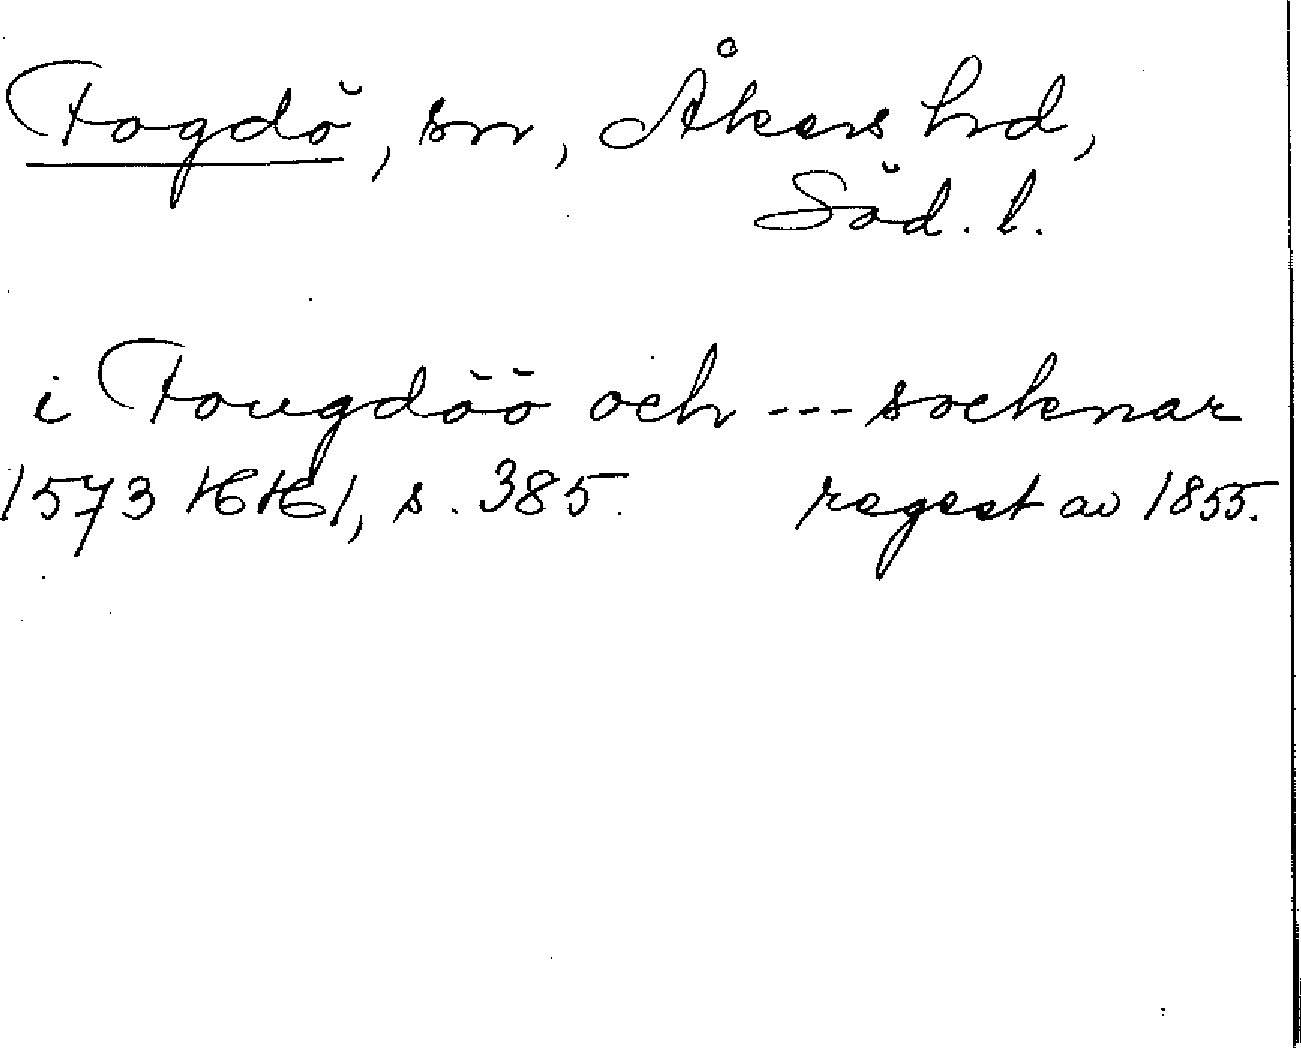 Fogdö, sn, Åkers hrd,
Söd. l.
i Fougdöö och --- socknar
1573 HH 1, s. 385. regest av 1855.